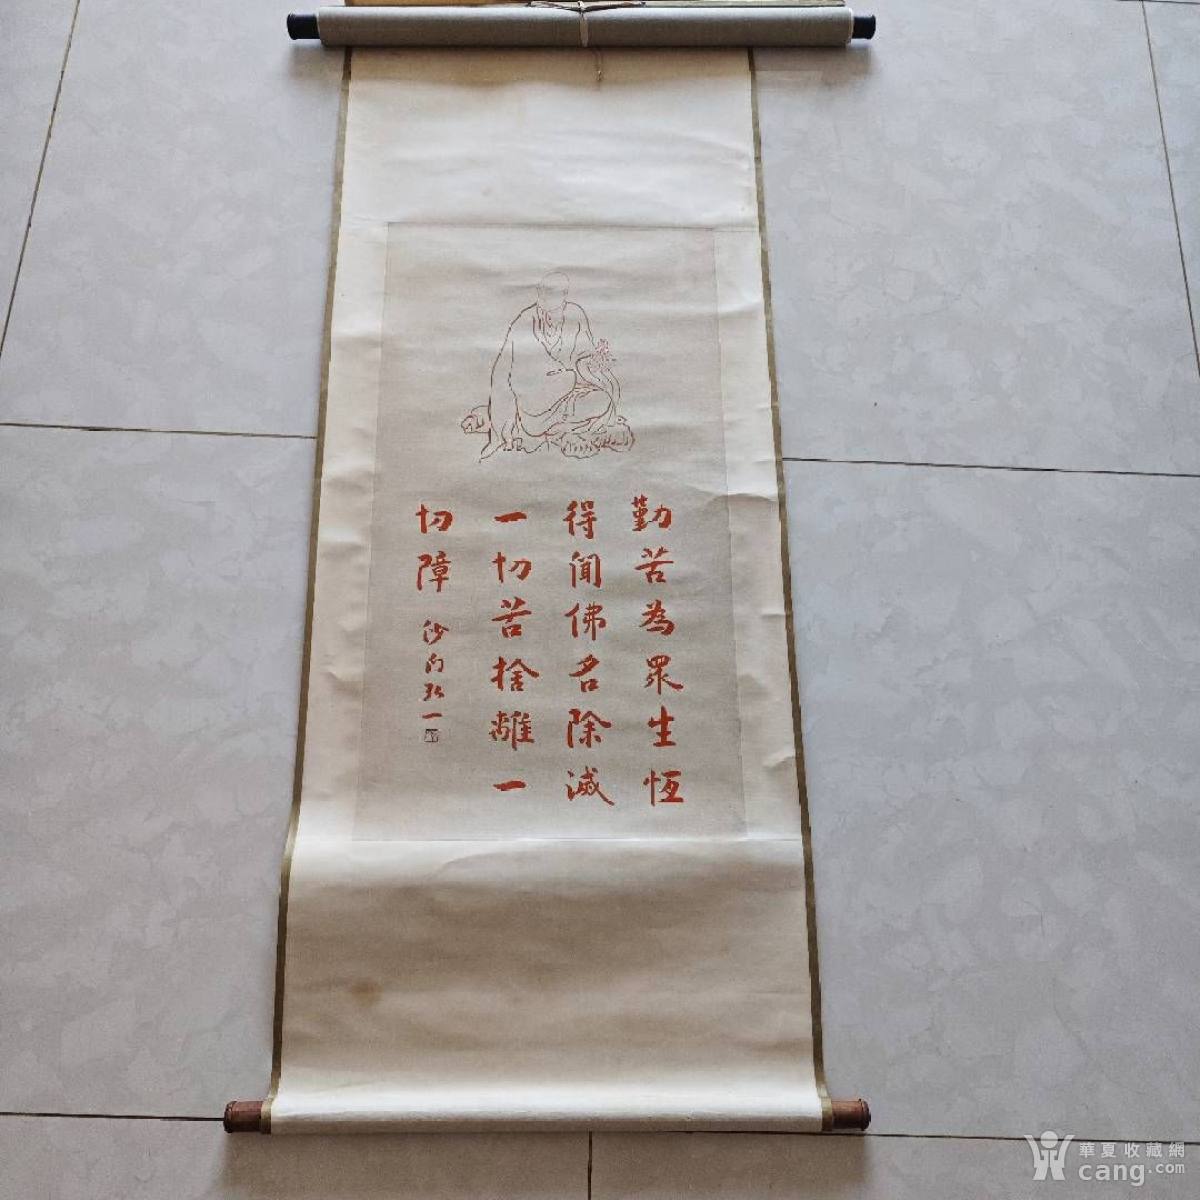 勤苦為眾生恆
得聞佛名除滅
一切苦捨離一
切障
沙門弘一
華夏收藏網
cang.com